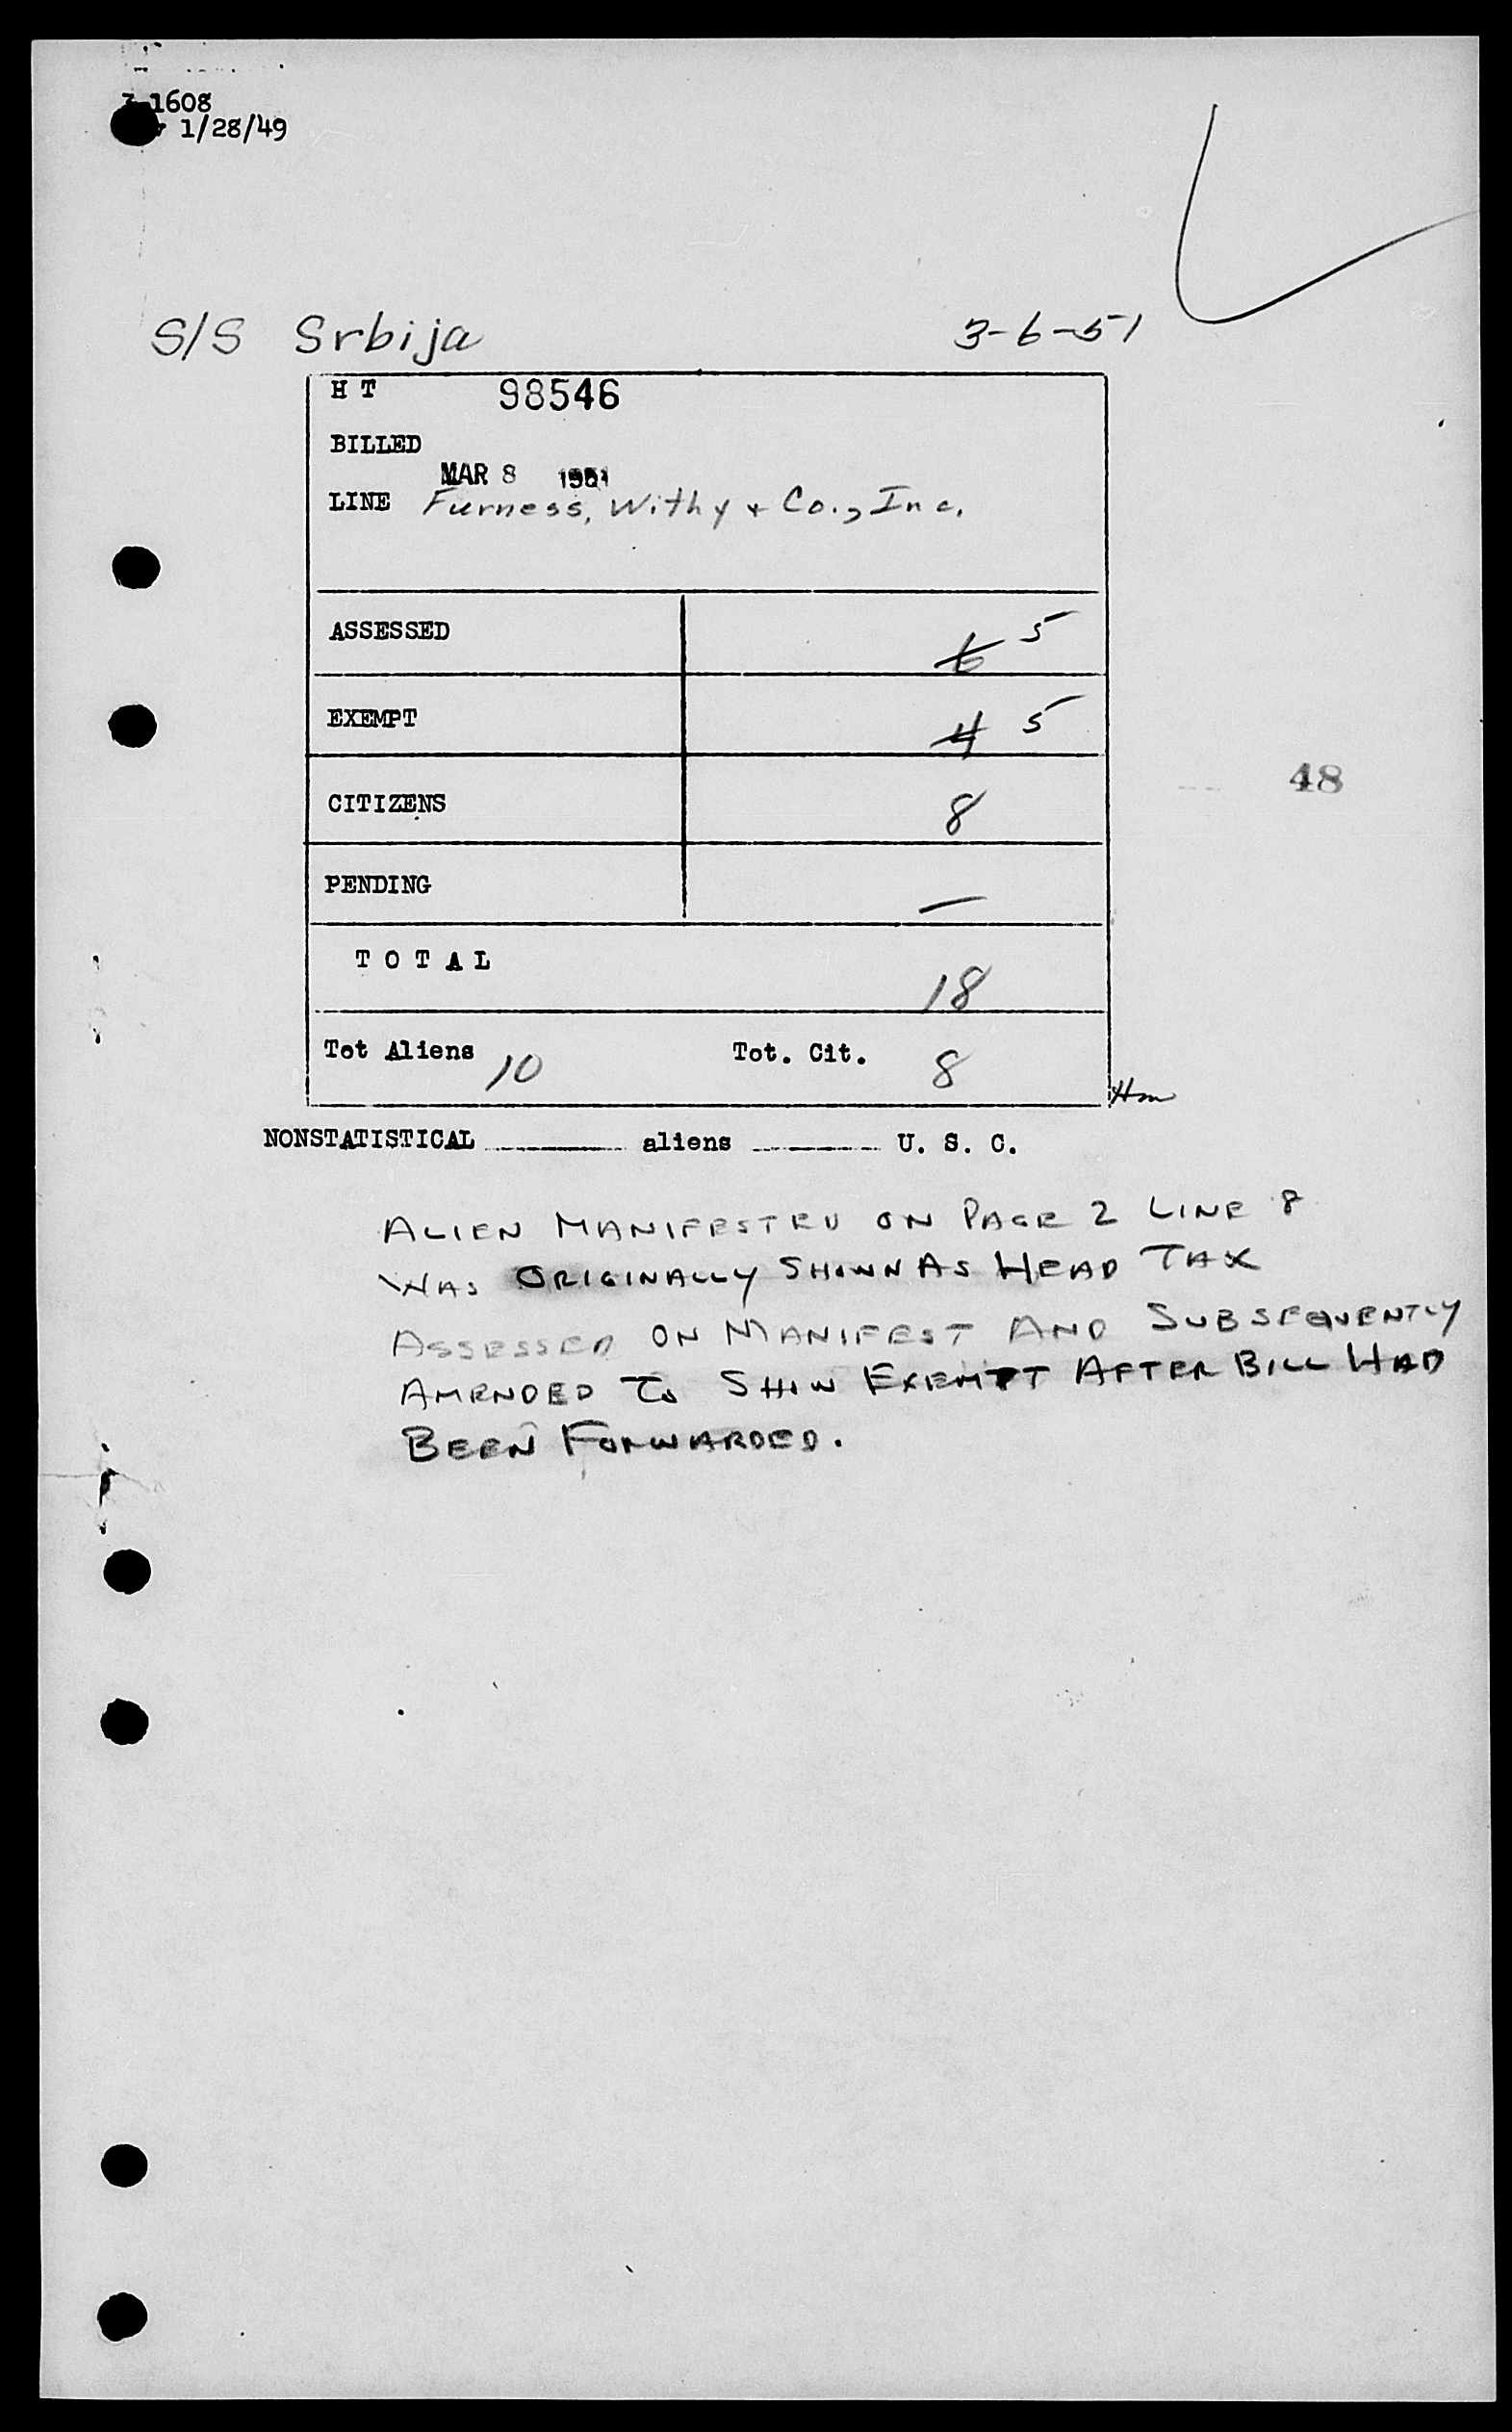 1608
1/28/49
S/S Srbija 3-6-51
H T 98546
BILLED
MAR 8 1951
LINE Furness, Withy + Co., Inc.
ASSESSED 6 5
EXEMPT 4 5
CITIZENS 8
48
PENDING —
T O T A L
18
Tot Aliens 10 Tot. Cit. 8
Hm
NONSTATISTICAL aliens U. S. C.
ALIEN MANIFESTED ON PAGE 2 LINE 8
WAS ORIGINALLY SHOWN AS HEAD TAX
ASSESSED ON MANIFEST AND SUBSEQUENTLY
AMENDED TO SHOW EXEMPT AFTER BILL HAD
BEEN FORWARDED.